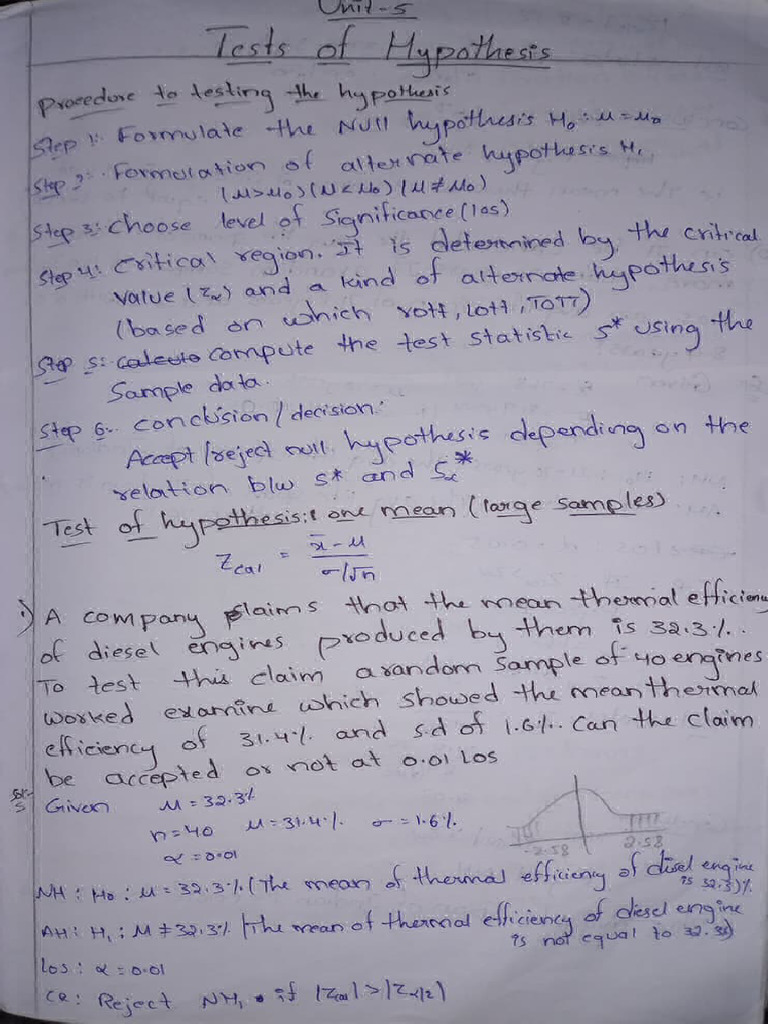 Unit-5
Tests of Hypothesis
procedure to testing the hypothesis
Step 1: Formulate the Null hypothesis H₀ : μ = μ₀
Step 2:- Formulation of alternate hypothesis H₁
(μ>μ₀) (μ<μ₀) (μ≠μ₀)
Step 3: choose level of significance (los)
Step 4: critical region. It is determined by the critical
value (Zα) and a kind of alternate hypothesis
(based on which ROTT, LOTT, TOTT)
Step 5: compute the test statistic S* using the
sample data.
Step 6:- conclusion / decision:
Accept / reject null hypothesis depending on the
relation b/w S* and Sα*
Test of hypothesis: one mean (large samples)
Zcal = x̄ - μ / σ/√n
1) A company claims that the mean thermal efficiency
of diesel engines produced by them is 32.3%.
To test this claim a random sample of 40 engines
worked examine which showed the mean thermal
efficiency of 31.4% and s.d of 1.6%. Can the claim
be accepted or not at 0.01 los
Sol:- Given μ = 32.3%
n = 40 μ = 31.4% σ = 1.6%.
α = 0.01
-2.58 2.58
NH : H₀ : μ = 32.3% (The mean of thermal efficiency of diesel engine
is 32.3)%
AH : H₁ : μ ≠ 32.3% (The mean of thermal efficiency of diesel engine
is not equal to 32.3%)
los : α = 0.01
CR : Reject NH, if |Zcal| > |Zα/2|